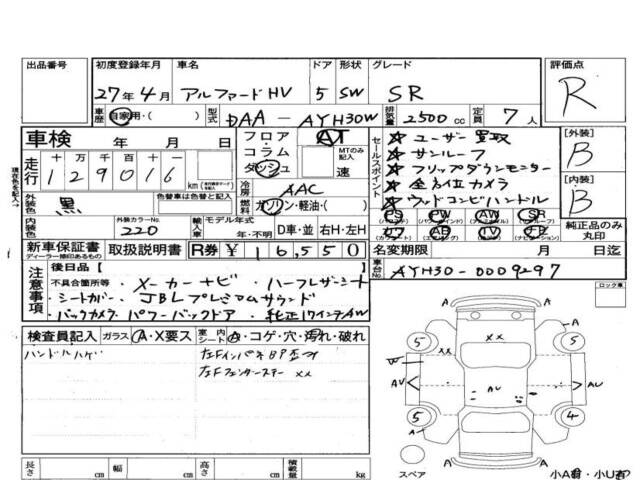 出品番号 初度登録年月 車名 ドア 形状 グレード 評価点
27年4月 アルファードHV 5 SW SR R
車歴 自家用・( ) 型式 DAA-AYH30W 排気量 2500cc 定員 7人
車検 年 月 日 フロア AT
コラム MTのみ記入
ダッシュ 速
走行 十万千百十一
129016 km
セールスポイント
★ユーザー買取
★サンルーフ
★フリップダウンモニター
★全方位カメラ
★ウッドコンビハンドル
[外装] B
[内装] B
外装色 黒 色替車は色替と記入 冷房 AAC
燃料 ガソリン・軽油・( )
内装色 外装カラーNo. 220 輸入車 モデル年式 年・不明 D車・並 右H・左H
PS PW AW SR
AB TV
純正品のみ丸印
新車保証書 取扱説明書 R券 ¥16,550 名変期限 月 日迄
ディーラー捺印あるもの
車台No. AYH30-0009297
注意事項
後日品[ ]
不具合箇所等 ・メーカーナビ ・ハーフレザーシート
・シートカバー ・JBLプレミアムサウンド
・バックカメラ・パワーバックドア ・純正17インチAW
ロック車
検査員記入 ガラス A・X要ス 室内シート ・コゲ・穴・汚れ・破れ
ハンドルハゲ
左FインパネBP歪
左Fフェンダーステー XX
A
5 XX 5
W
AV AU AU
5 4
A A
A A
スペア
小A・小U
長さ cm 幅 cm 高さ cm 積載量 kg